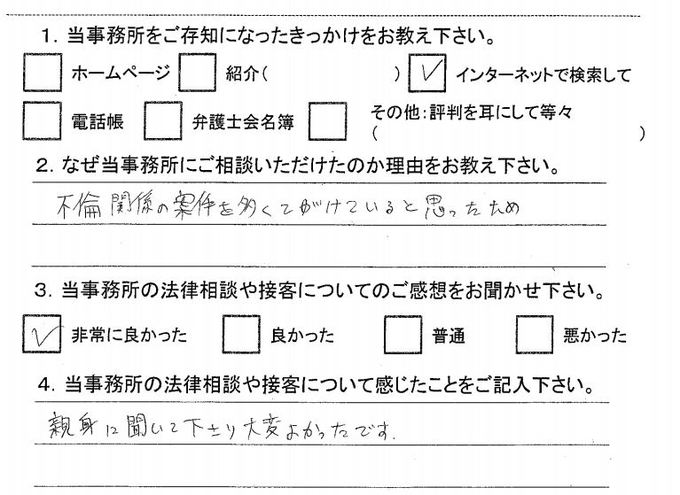 1. 当事務所をご存知になったきっかけをお教え下さい。
ホームページ 紹介( ) インターネットで検索して
電話帳 弁護士会名簿 その他:評判を耳にして等々
( )
2. なぜ当事務所にご相談いただけたのか理由をお教え下さい。
不倫関係の案件を多くてがけていると思ったため
3. 当事務所の法律相談や接客についてのご感想をお聞かせ下さい。
非常に良かった 良かった 普通 悪かった
4. 当事務所の法律相談や接客について感じたことをご記入下さい。
親身に聞いて下さり大変よかったです.